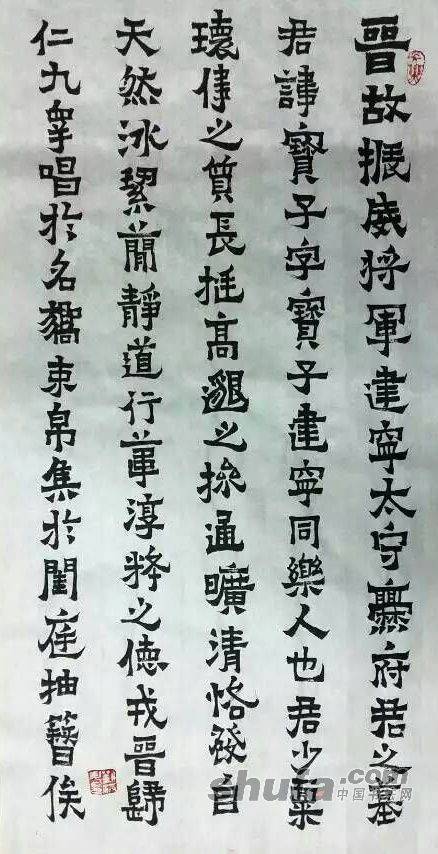 晉故振威將軍建寧太守爨府君之墓
君諱寶子字寶子建寧同樂人也君少稟
瓌偉之質長挺高邈之操通曠清恪發自
天然冰絜蕳靜道行葦淳粹之德戎晉歸
仁九皋唱於名嚮束帛集於閨庭抽簪俟
shufa.com
中国书法网